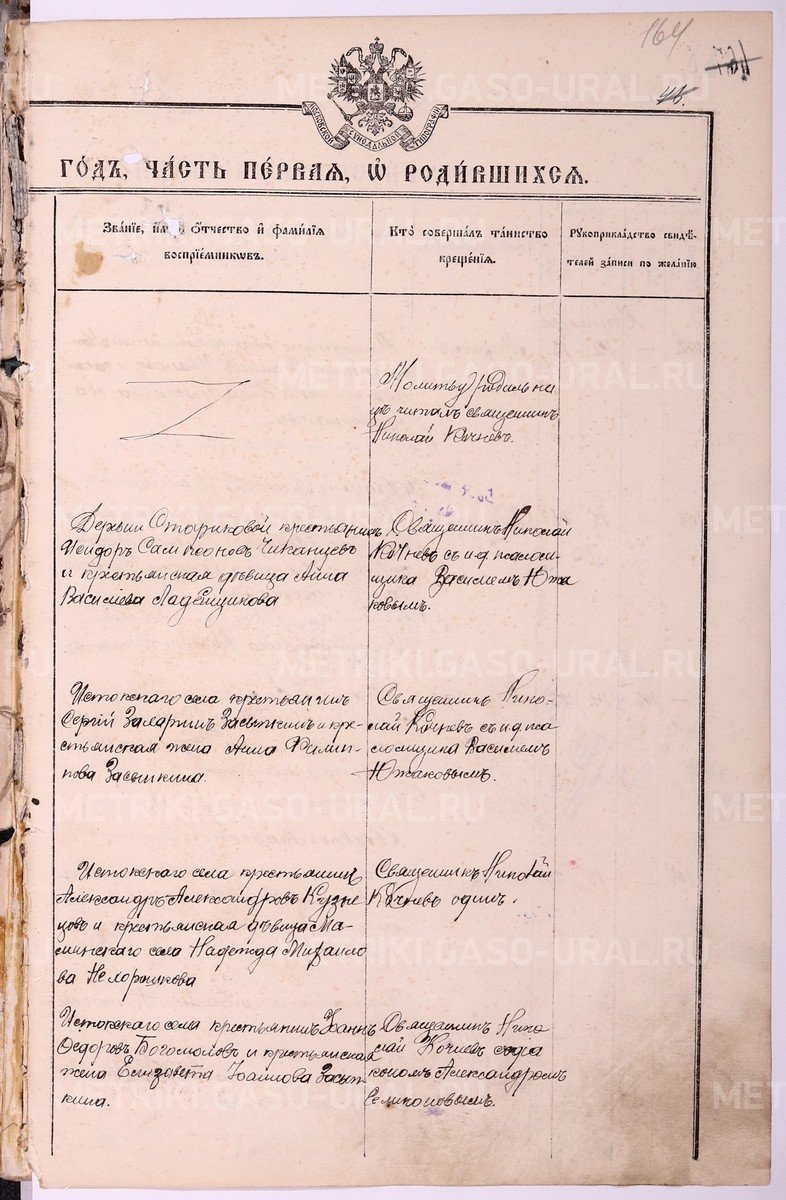 164
46.
МОСКОВСКОЙ СѴНОДАЛЬНОЙ ТИПОГРАФІИ
ГО́ДЪ, ЧА́СТЬ ПЕ́РВАЯ, Ѽ РОДИ́ВШИХСЯ.
Зва́нїе, и́мя, ѻ҆́тчество и҆ фами́лїя
воспрїе́мниковъ.
Кто̀ соверша́лъ та́инство
креще́нїя.
Рꙋкоприкла́дство свидѣ́-
телей за́писи по жела́нїю
Молитву родильни
цѣ читалъ священникъ
Николай Кочневъ.
Деревни Стариковой крестьянинъ
Исидоръ Сампсоновъ
и крестьянская дѣвица Анна
Василіева Ладейщикова
Священникъ Николай
Кочневъ съ и д псалом-
щика Василіемъ Южа
ковымъ.
Истокскаго села крестьянинъ
Сергій Захаринъ Засыпкинъ и кре-
стьянская жена Анна Филип-
пова Засыпкина.
Священникъ Нико-
лай Кочневъ съ и д пса
ломщика Василіемъ
Южаковымъ.
Истокскаго села крестьянинъ
Александръ Александровъ Кузне
цовъ и крестьянская дѣвица Ма-
минскаго села Надежда Михаило
ва Нехорошкова
Священникъ Николай
Кочневъ одинъ.
Истокскаго села крестьянинъ Іоаннъ
Ѳедоровъ Богомоловъ и крестьянская
жена Елизавета Іоаннова Засып-
кина.
Священникъ Нико
лай Кочневъ съ діа
кономъ Александромъ
METRIKI.GASO-URAL.RU